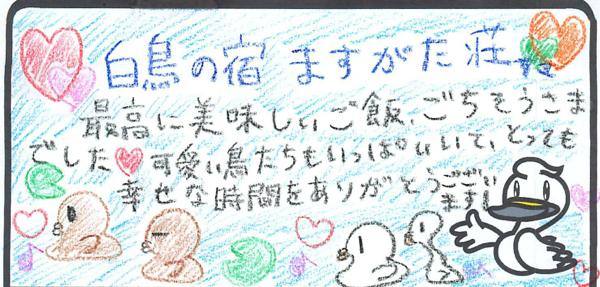 白鳥の宿 ますがた荘
最高に美味しいご飯、ごちそうさま
でした♥可愛い鳥たちもいっぱいいて、とっても
幸せな時間をありがとうござい
ます!